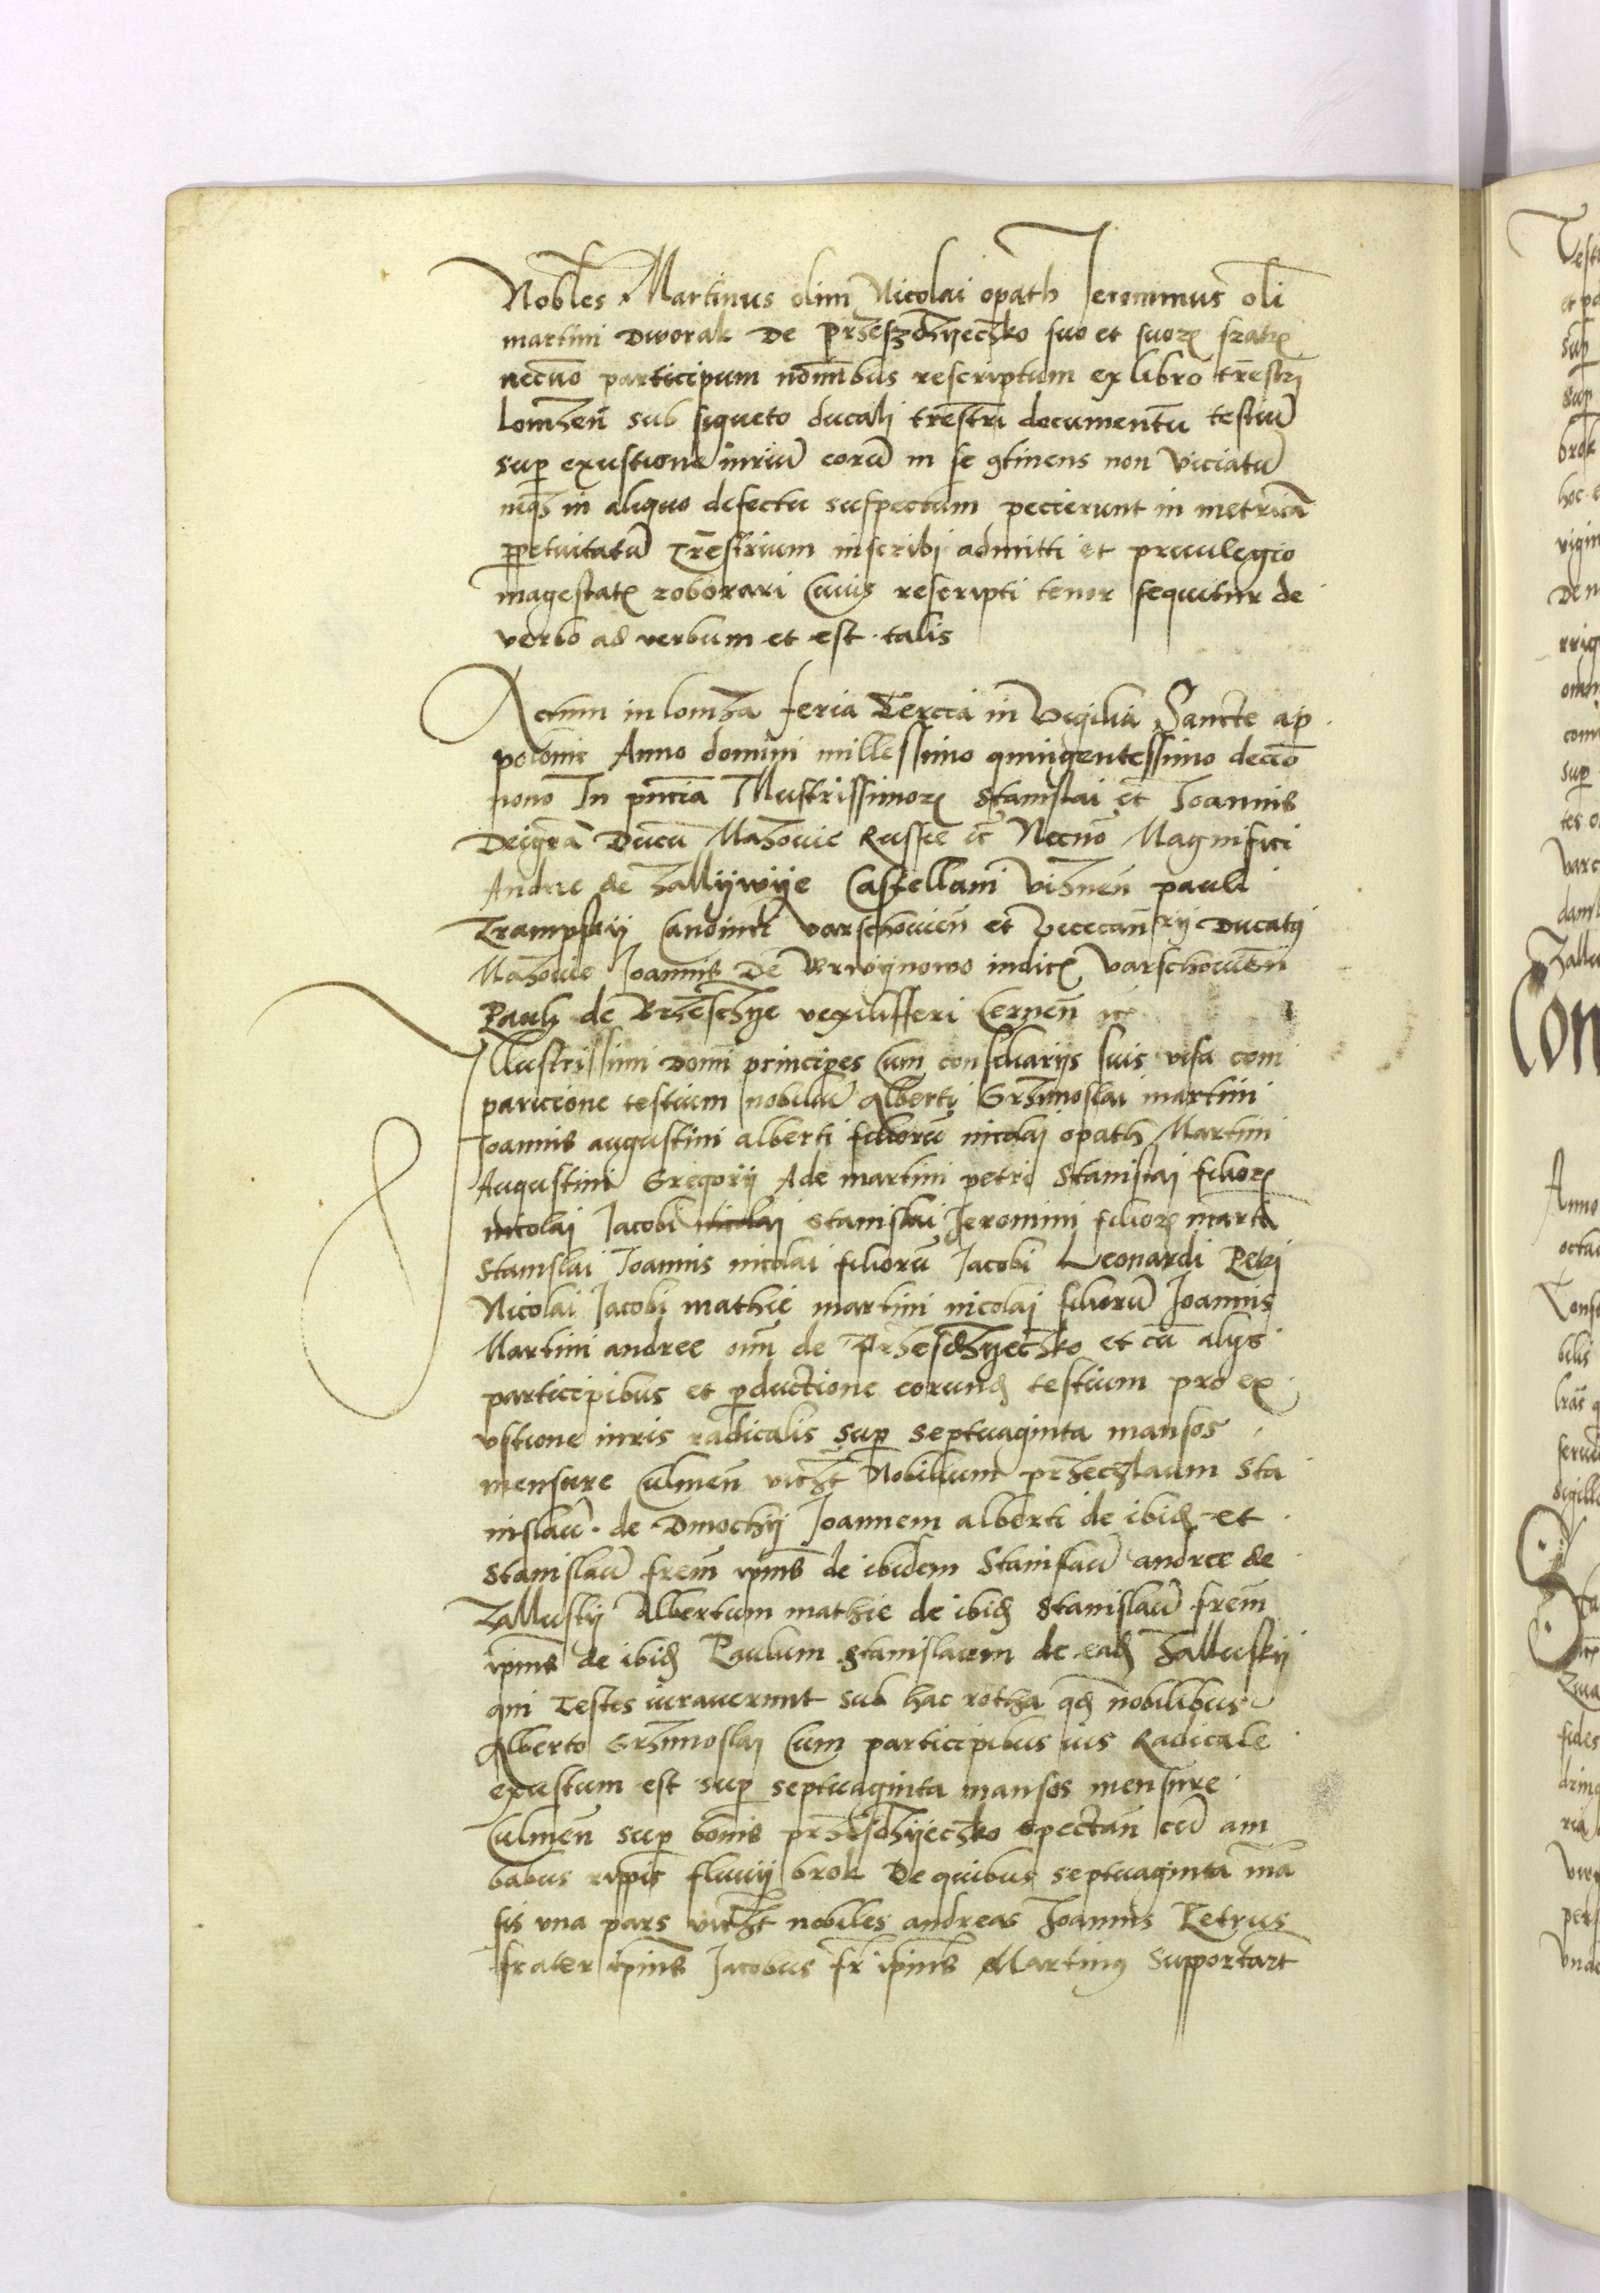 Nobles Martinus olim Nicolai opath Jeronimus oli
martini Dworak De Prheszdzhyeczko suo et suorꝫ fratrꝫ
necnō participum nomībus rescriptum ex libro trēstri
lomzhen̄ sub sigueto ducali trēstri documentū testiū
sup exustione iuriū eorū in se ꝯtinens non viciatū
in aliquo defectu suspectum pecierunt in metricā
ꝑpetuitatū Trēstrium inscribi admitti et priuilegio
magestatꝫ roborari Cuius rescripti tenor sequitur de
verbo ad verbum et est talis
Actum in lomzha feria Tercia in Vigilia Sancte ap
polonie Anno domini millessimo quingentessimo decīo
nono In pn̄tia Illustrissimorꝫ Stanislai et Joannis
Deigrā Ducū Mazhouie Russie ꝛc Necnō Magnifici
Andree de Zallijwije Castellani Viznen̄ pauli
Trampskij Canonici varschouien̄ et vicecan̄rij Ducatꝰ
Mazhouie Joannis De Wrwijnowo iudicꝫ Varschouien̄
Pauli de Brzheschye vexillifferi Cernen̄ ꝛc
Illustrissimi Domī principes Cum consiliarijs suis visa com
paricione testium nobiliū Alberti Grzhimoslai martini
Joannis augustini alberti filiorū nicolai opath Martini
Augustini Gregorij Ade martini petri Stanislai filiorꝫ
nicolai Jacobi nicolai stanislai Jeronimi filiorꝫ marti
Stanislai Joannis nicolai filiorū Jacobi Leonardi Petri
Nicolai Jacobi mathie martini nicolai filiorū Joannis
Martini andree oīm de Przheszdzhyeczko et cū alijs
participibus et ꝓductione eorund̄ testium pro ex
vstione iuris radicalis sup septuaginta mansos
mensure Culmen̄ vidzt Nobilium przheczlaum Sta
nislaū de Dmochij Joannem alberti de ibid̄ et
Stanislaū frem̄ ipīus de ibidem Stanislaū andree de
Zalluskij Albertum mathie de ibid̄ Stanislaū frem̄
ipīus de ibid̄ Paulum Stanislaum de ead̄ Zalluskij
qui Testes iurauerunt sub hac rotha qd̄ nobilibus
Alberto Grzhimoslai Cum participibus ius Radicale
exustum est sup septuaginta mansos mensure
Culmen̄ sup bonis przheszdzhyeczko spectan̄ cū am
babus ripis fluuij brok De quibus septuaginta mā
sis vna pars vidzt nobiles andreas Joannis Petrus
frater ipīus Jacobus fr̄ ipīus Martinꝰ supportart